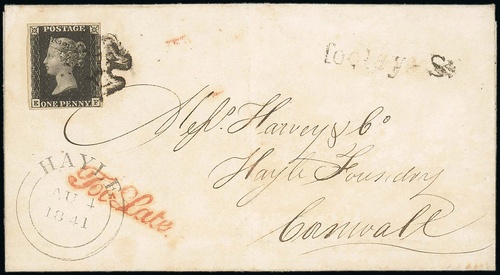 POSTAGE
ONE PENNY
Mess. Harvey & Co
Hayle Foundry
Cornwall
HAYLE
AU 4
1841
Too Late.